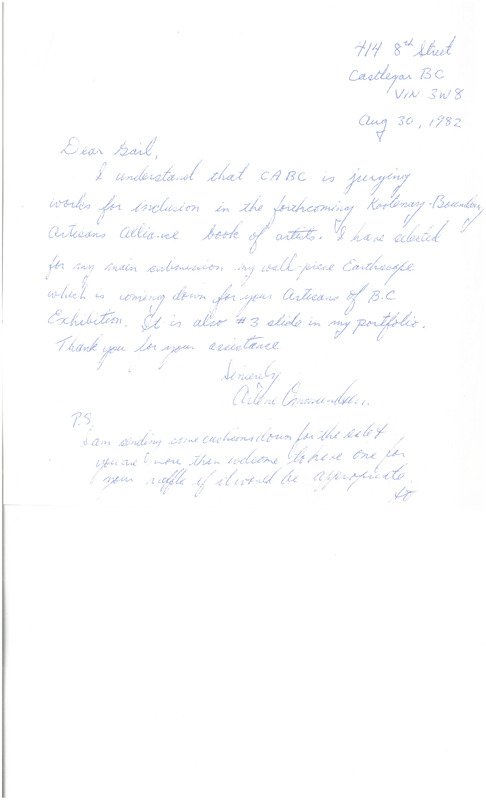 414 8th Street
Castlegar BC
V1N 3W8
Aug 30, 1982
Dear Gail,
I understand that CABC is jurying
works for inclusion in the forthcoming Kootenay-Boundary
Artisans Alliance book of artists. I have selected
for my main submission my wall-piece Earthscape
which is coming down for your Artisans of B.C
Exhibition. It is also #3 slide in my portfolio.
Thank you for your assistance
Sincerely
Arlene
P.S.
I am sending some cushions down for the sale &
you are more than welcome to have one for
your raffle if it would be appropriate.